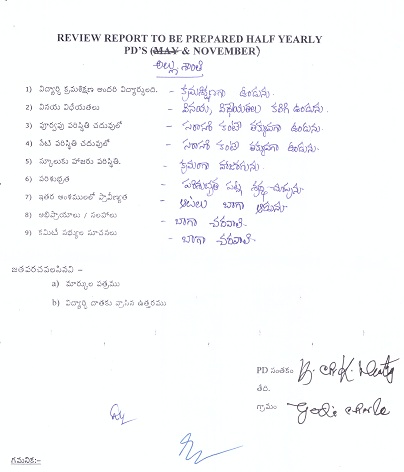 REVIEW REPORT TO BE PREPARED HALF YEARLY
PD'S (MAY & NOVEMBER)
అల్లు శాంతి
1) విద్యార్థి క్రమశిక్షణ అందరి విద్యార్థులది. - క్రమశిక్షణగా ఉండును.
2) వినయ విధేయతలు - వినయ, విధేయతలు కలిగి ఉండును.
3) పూర్వపు పరిస్థితి చదువులో - సరాసరి కంటే తక్కువగా ఉండును.
4) నేటి పరిస్థితి చదువులో - సరాసరి కంటే తక్కువగా ఉండును.
5) స్కూలుకు హాజరు పరిస్థితి. - క్రమంగా
6) పరిశుభ్రత - పరిశుభ్రత పట్ల శ్రద్ధ
7) ఇతర అంశములలో ప్రావీణ్యత - ఆటలు బాగా ఆడును.
8) అభిప్రాయాలు / సలహాలు - బాగా చదవాలి.
9) కమిటీ సభ్యుల సూచనలు - బాగా చదవాలి.
జతపరచవలసినవి –
a) మార్కుల పత్రము
b) విద్యార్థి దాతకు వ్రాసిన ఉత్తరము
PD సంతకం
తేది.
గ్రామం
గమనిక:-